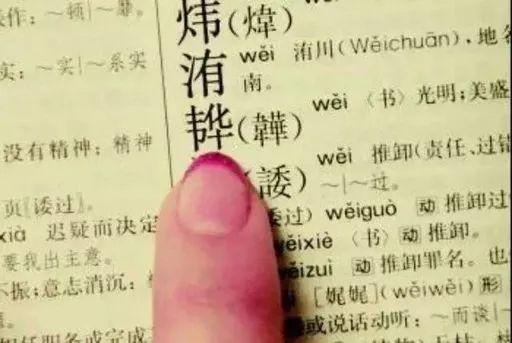 作：～顿|～靡。
实：～实|～系实
没有精神：精神
页〖诿过〗
xià 迟疑而决定
要我出主意。
不振；意志消沉：
炜(煒)
洧 wěi 洧川(Wěichuān)，地名
南。
韡(韡) wěi 〈书〉光明；美盛
(諉) wěi 推卸(责任、过错
～|～过。
诿过) wěiguò 动 推卸过
wěixiè 〈书〉动 推卸。
wěizuì 动 推卸罪名。也
[娓娓](wěiwěi) 形
或说话动听：～而谈|～